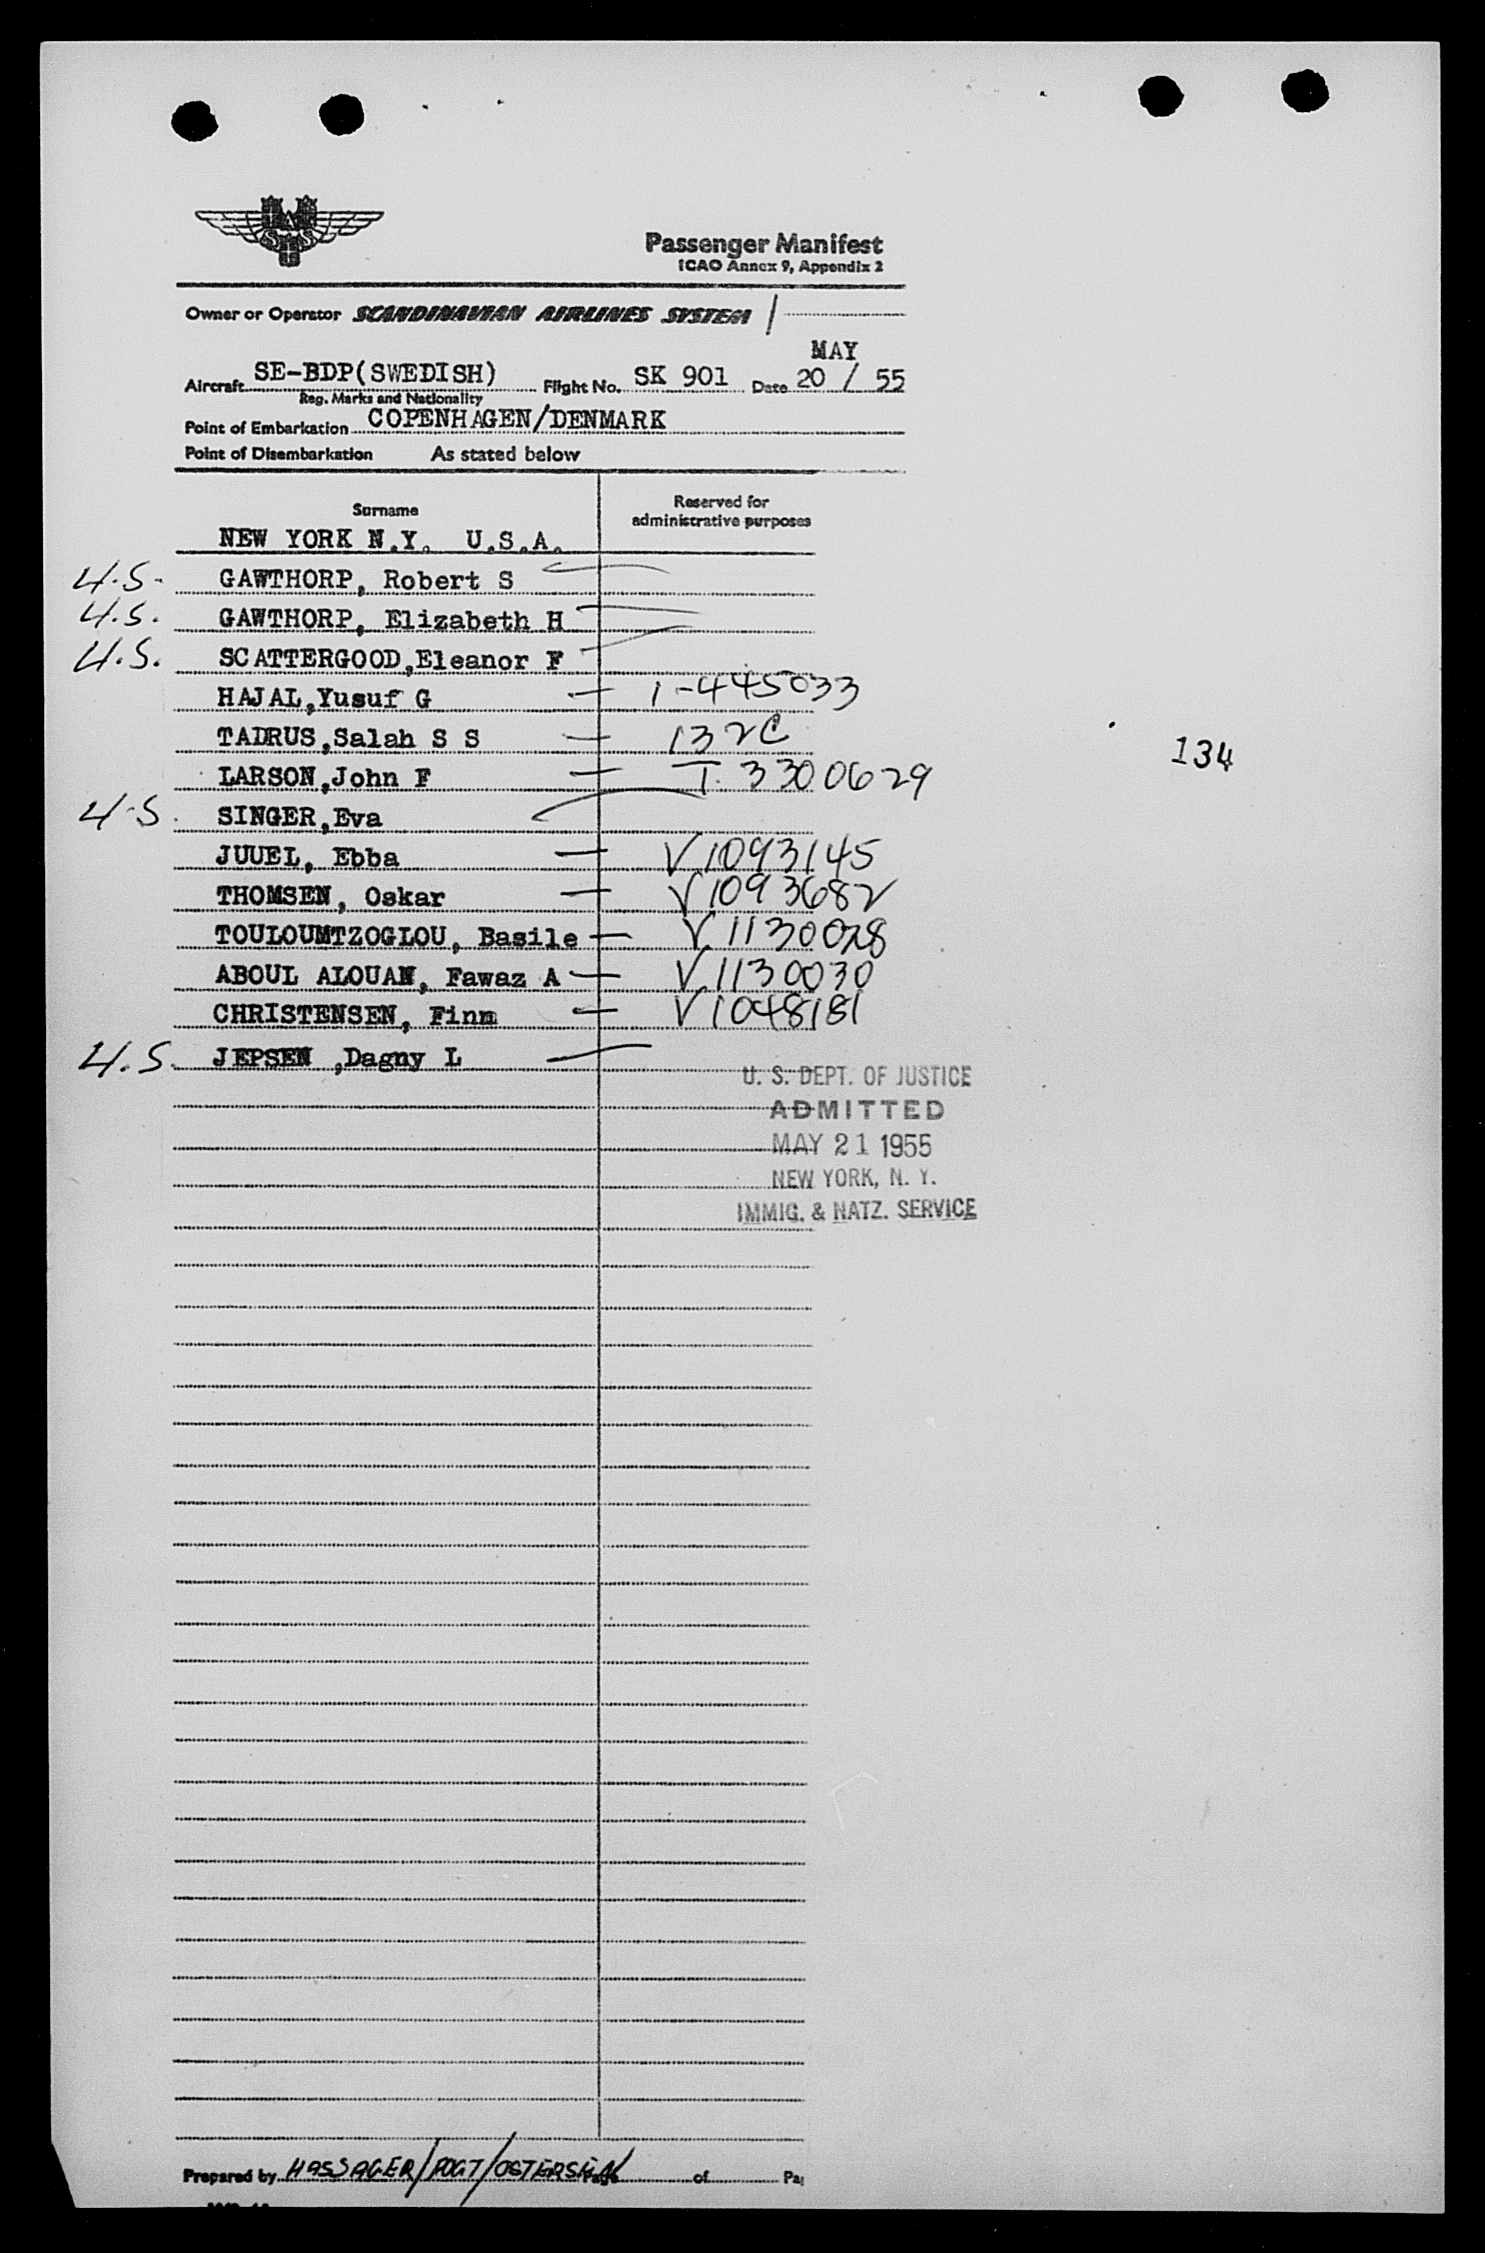 SAS
Passenger Manifest
ICAO Annex 9, Appendix 2
Owner or Operator SCANDINAVIAN AIRLINES SYSTEM /
MAY
Aircraft SE-BDP(SWEDISH) Flight No. SK 901 Date 20 / 55
Reg. Marks and Nationality
Point of Embarkation COPENHAGEN/DENMARK
Point of Disembarkation As stated below
Surname Reserved for administrative purposes
NEW YORK N.Y. U.S.A.
U.S. GAWTHORP, Robert S
U.S. GAWTHORP, Elizabeth H
U.S. SCATTERGOOD,Eleanor F
HAJAL,Yusuf G 1-445033
TADRUS,Salah S S 132C
134
LARSON,John F T. 3300629
U.S. SINGER,Eva
JUUEL, Ebba V1093145
THOMSEN, Oskar V1093682
TOULOUMTZOGLOU, Basile V1130028
ABOUL ALOUAN, Fawaz A V1130030
CHRISTENSEN, Finn V1048181
U.S. JEPSEN ,Dagny L
U. S. DEPT. OF JUSTICE
ADMITTED
MAY 21 1955
NEW YORK, N. Y.
IMMIG. & NATZ. SERVICE
Prepared by HASSAGER/FOGT/ Page of Pa